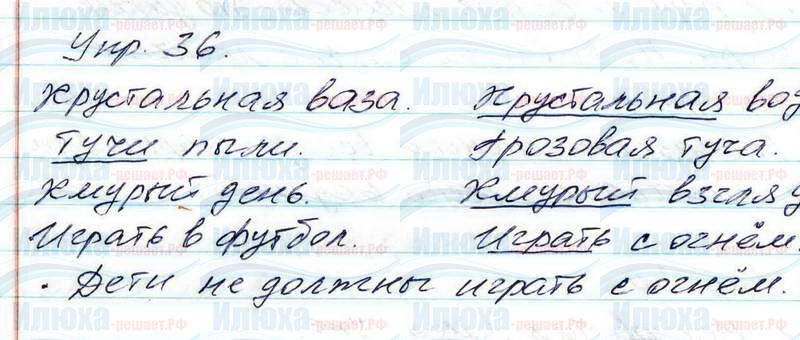 Упр. 36.
Хрустальная ваза. Хрустальная
Тучи пыли. Грозовая туча.
Хмурый день. Хмурый
Играть в футбол. Играть с огнём.
. Дети не должны играть с огнём.